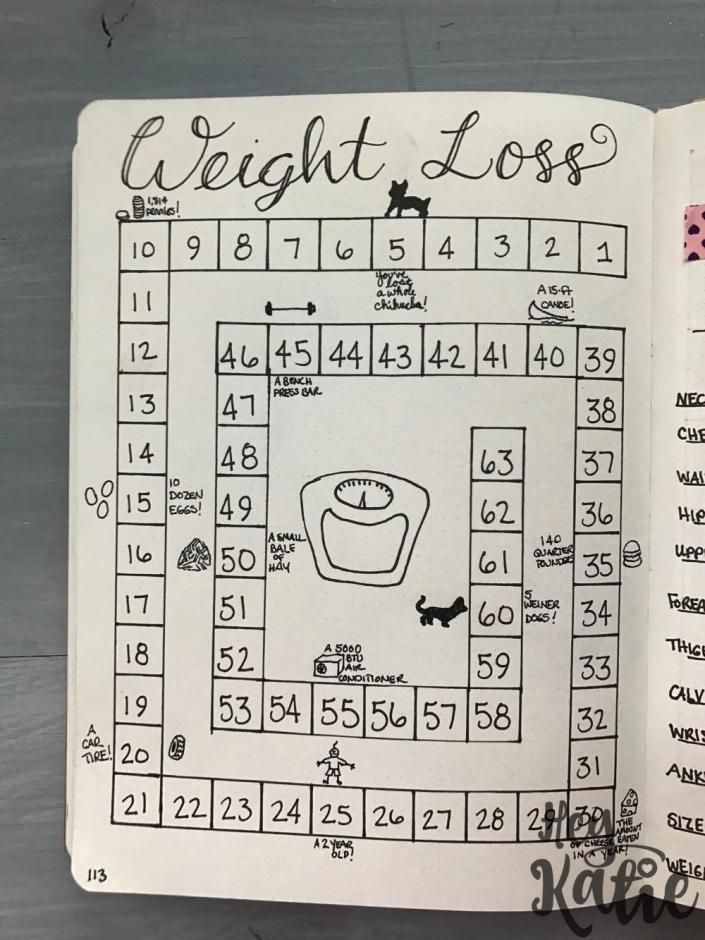 Weight Loss
1,814
pennies!
10 9 8 7 6 5 4 3 2 1
you've
lost
a whole
chihuahua!
A 15-FT
CANOE!
11
12
13
14
15
16
17
18
19
20
21 22 23 24 25 26 27 28 29 30
31
32
33
34
35
36
37
38
39
46 45 44 43 42 41 40
A BENCH
PRESS BAR
47
48
49
50
51
52
53 54 55 56 57 58
59
60
61
62
63
10
DOZEN
EGGS!
A SMALL
BALE
OF
HAY
140
QUARTER
POUNDERS
5
WEINER
DOGS!
A 5000
BTU
AIR
CONDITIONER
A
CAR
TIRE!
A 2 YEAR
OLD!
THE
AMOUNT
OF CHEESE EATEN
IN A YEAR!
113
Hey
Katie
NEC
CHE
WAI
HIP
UPP
FOREA
THIG
CALV
WRIS
ANK
SIZE
WEIG